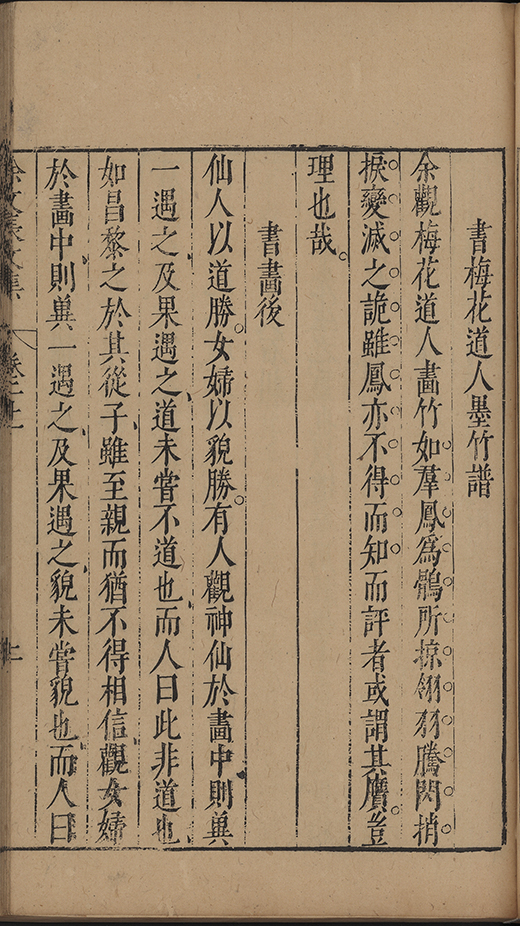 書梅花道人墨竹譜
余觀梅花道人畫竹如羣鳳爲鶻所掠翎羽騰閃捎
捩變滅之詭雖鳳亦不得而知而評者或謂其贋豈
理也哉
書畫後
仙人以道勝女婦以貌勝有人觀神仙於畫中則兾
一遇之及果遇之道未嘗不道也而人曰此非道也
如昌黎之於其從子雖至親而猶不得相信觀女婦
於畫中則兾一遇之及果遇之貌未嘗貌也而人曰
徐文長文集 卷二十一 上